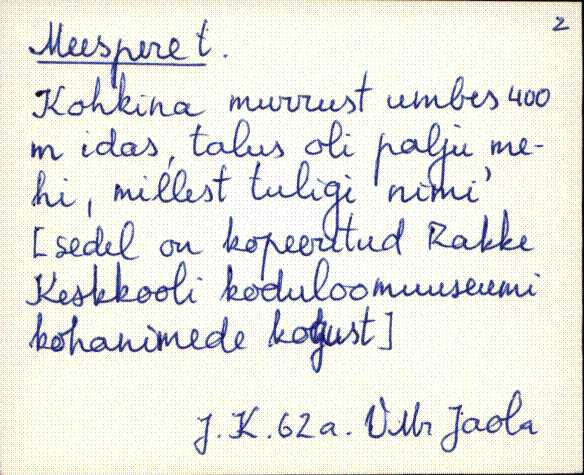 2
Meespere t.
Kohkina murrust umbes 400
m idas, talus oli palju me-
hi, millest tuligi nimi'
[sedel on kopeeritud Rakke
Keskkooli koduloomuuseumi
kohanimede kogust]
J. K. 62a. VMr Jaola